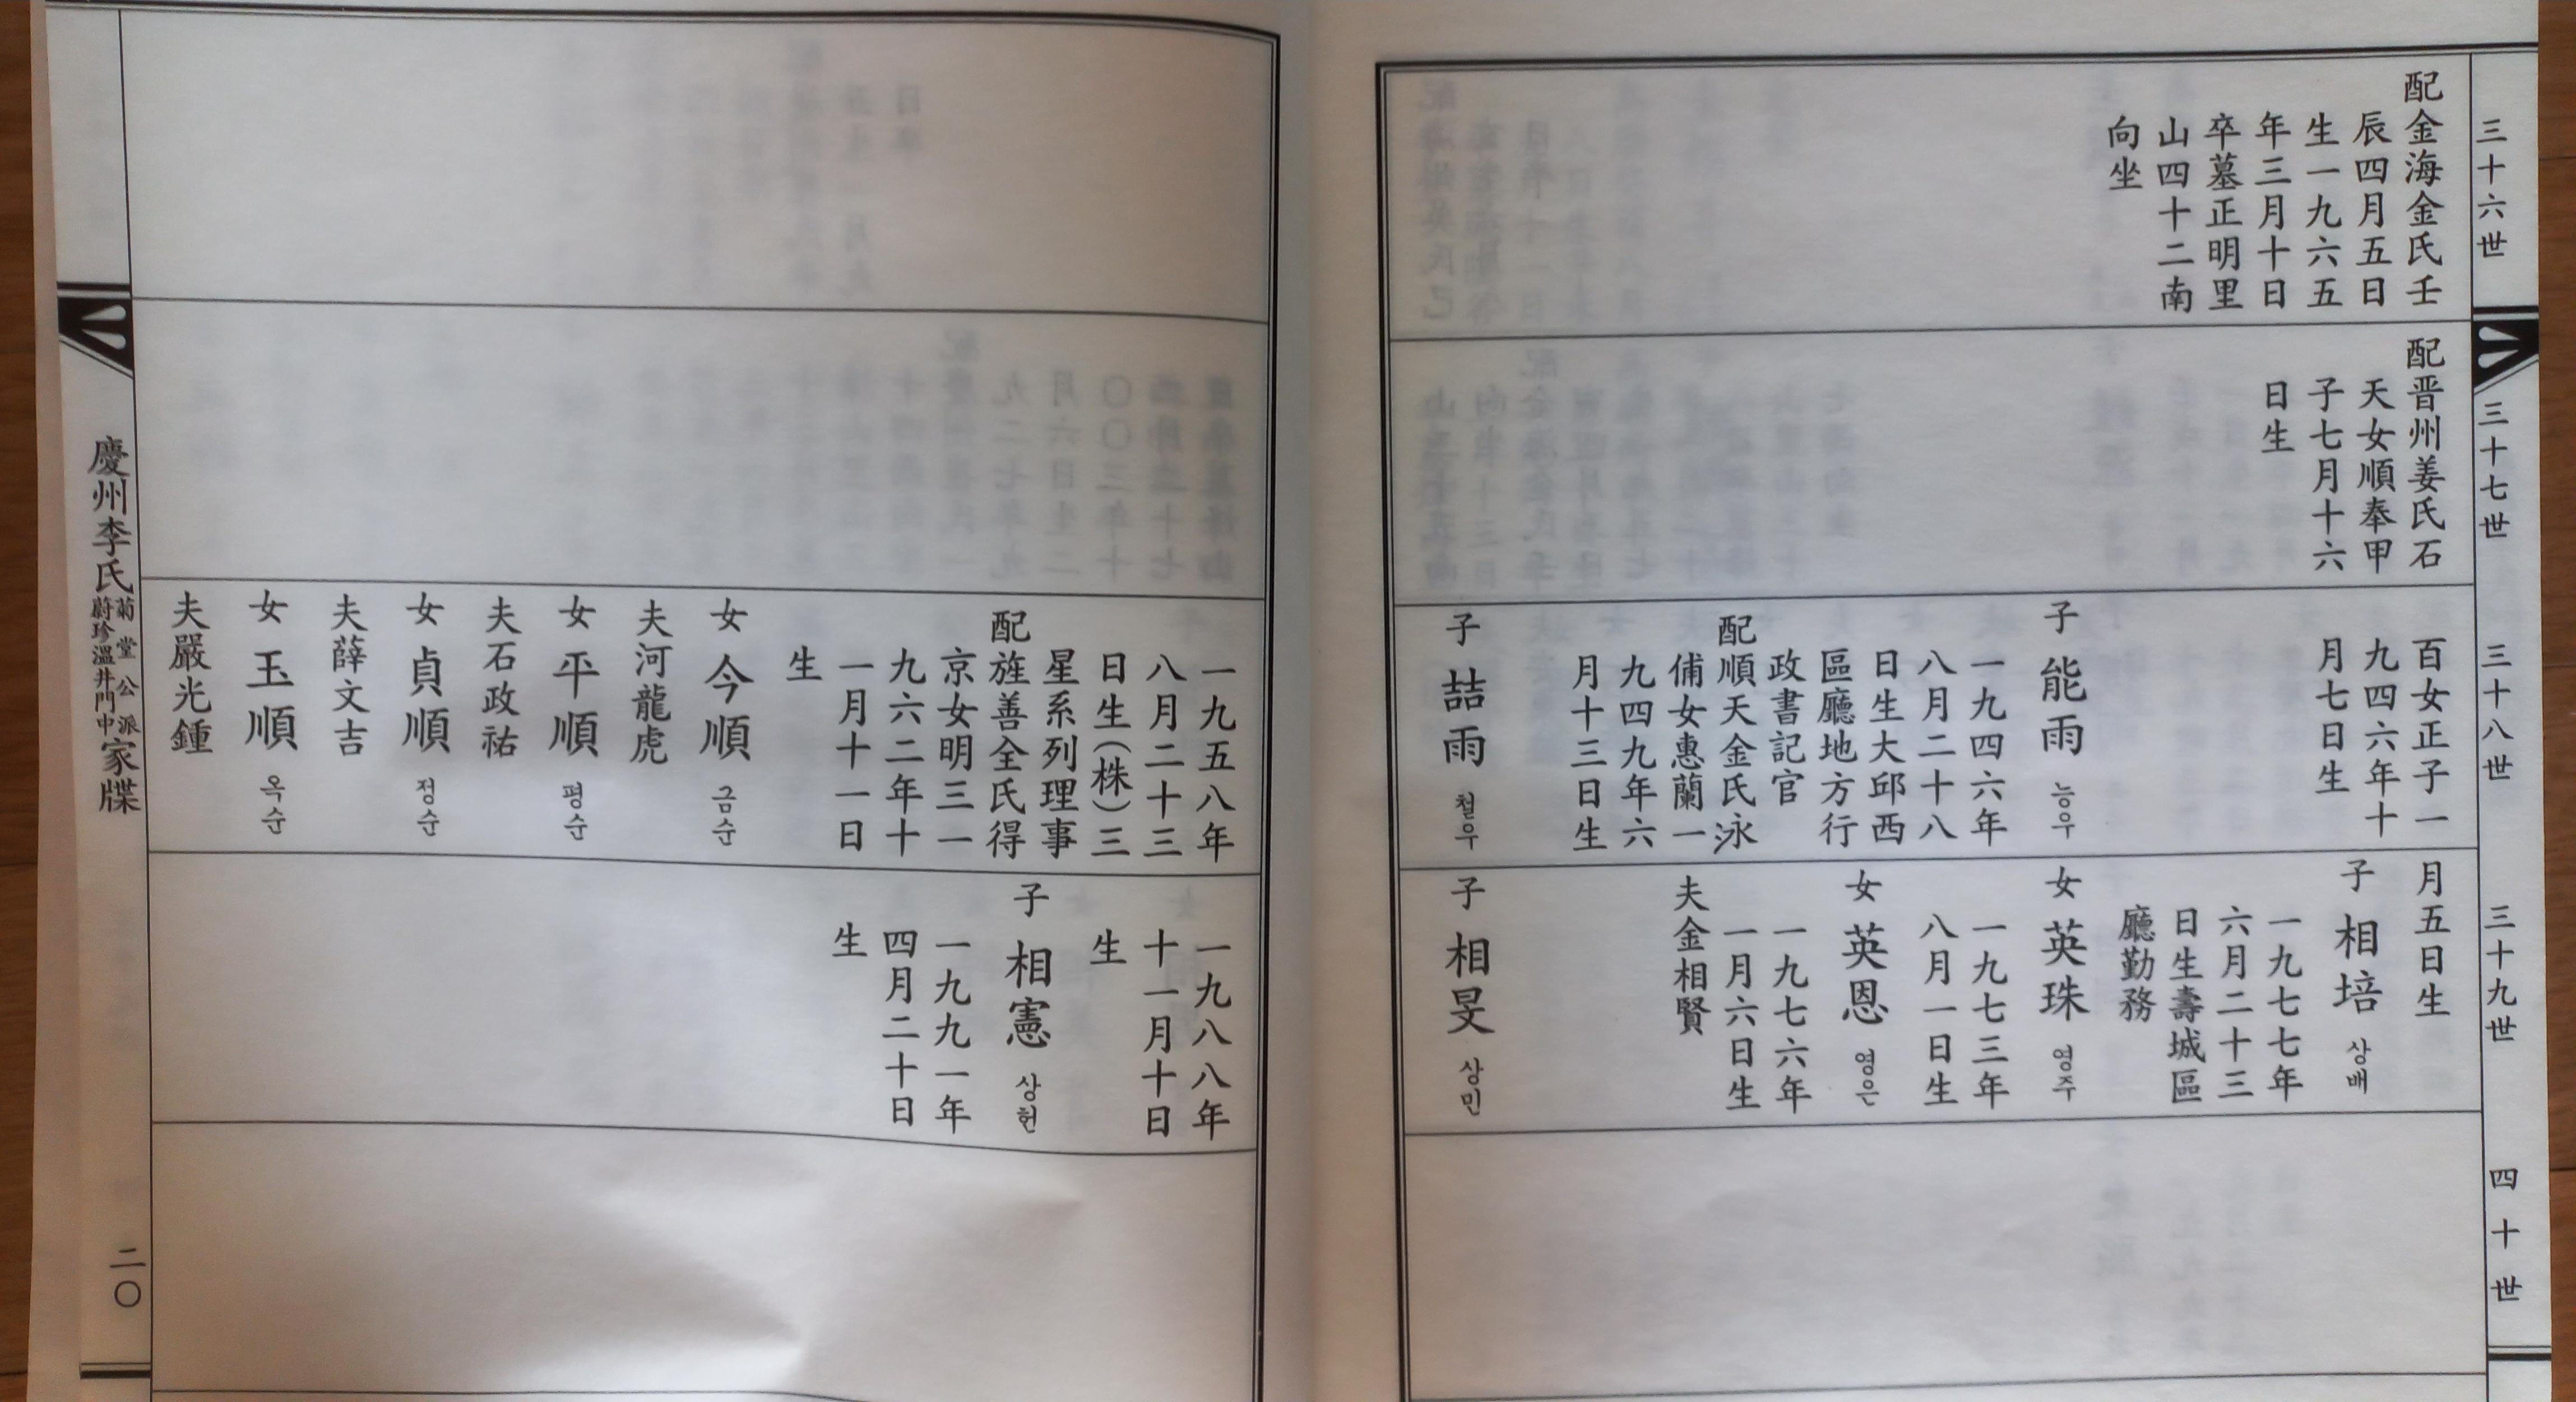 三十六世
配金海金氏壬
辰四月五日
生一九六五
年三月十日
卒墓正明里
山四十二南
向坐
三十七世
配晋州姜氏石
天女順奉甲
子七月十六
日生
三十八世
百女正子一
九四六年十
月七日生
子 能雨 능우
一九四六年
八月二十八
日生大邱西
區廳地方行
政書記官
配順天金氏泳
俌女惠蘭一
九四九年六
月十三日生
子 喆雨 철우
三十九世
月五日生
子 相培 상배
一九七七年
六月二十三
日生壽城區
廳勤務
女 英珠 영주
一九七三年
八月一日生
女 英恩 영은
一九七六年
一月六日生
夫金相賢
子 相旻 상민
四十世
一九五八年
八月二十三
日生(株)三
星系列理事
配旌善全氏得
京女明三一
九六二年十
一月十一日
生
女 今順 금순
夫河龍虎
女 平順 평순
夫石政祐
女 貞順 정순
夫薛文吉
女 玉順 옥순
夫嚴光鍾
一九八八年
十一月十日
生
子 相憲 상헌
一九九一年
四月二十日
生
慶州李氏菊堂公派蔚珍溫井門中家牒
二〇